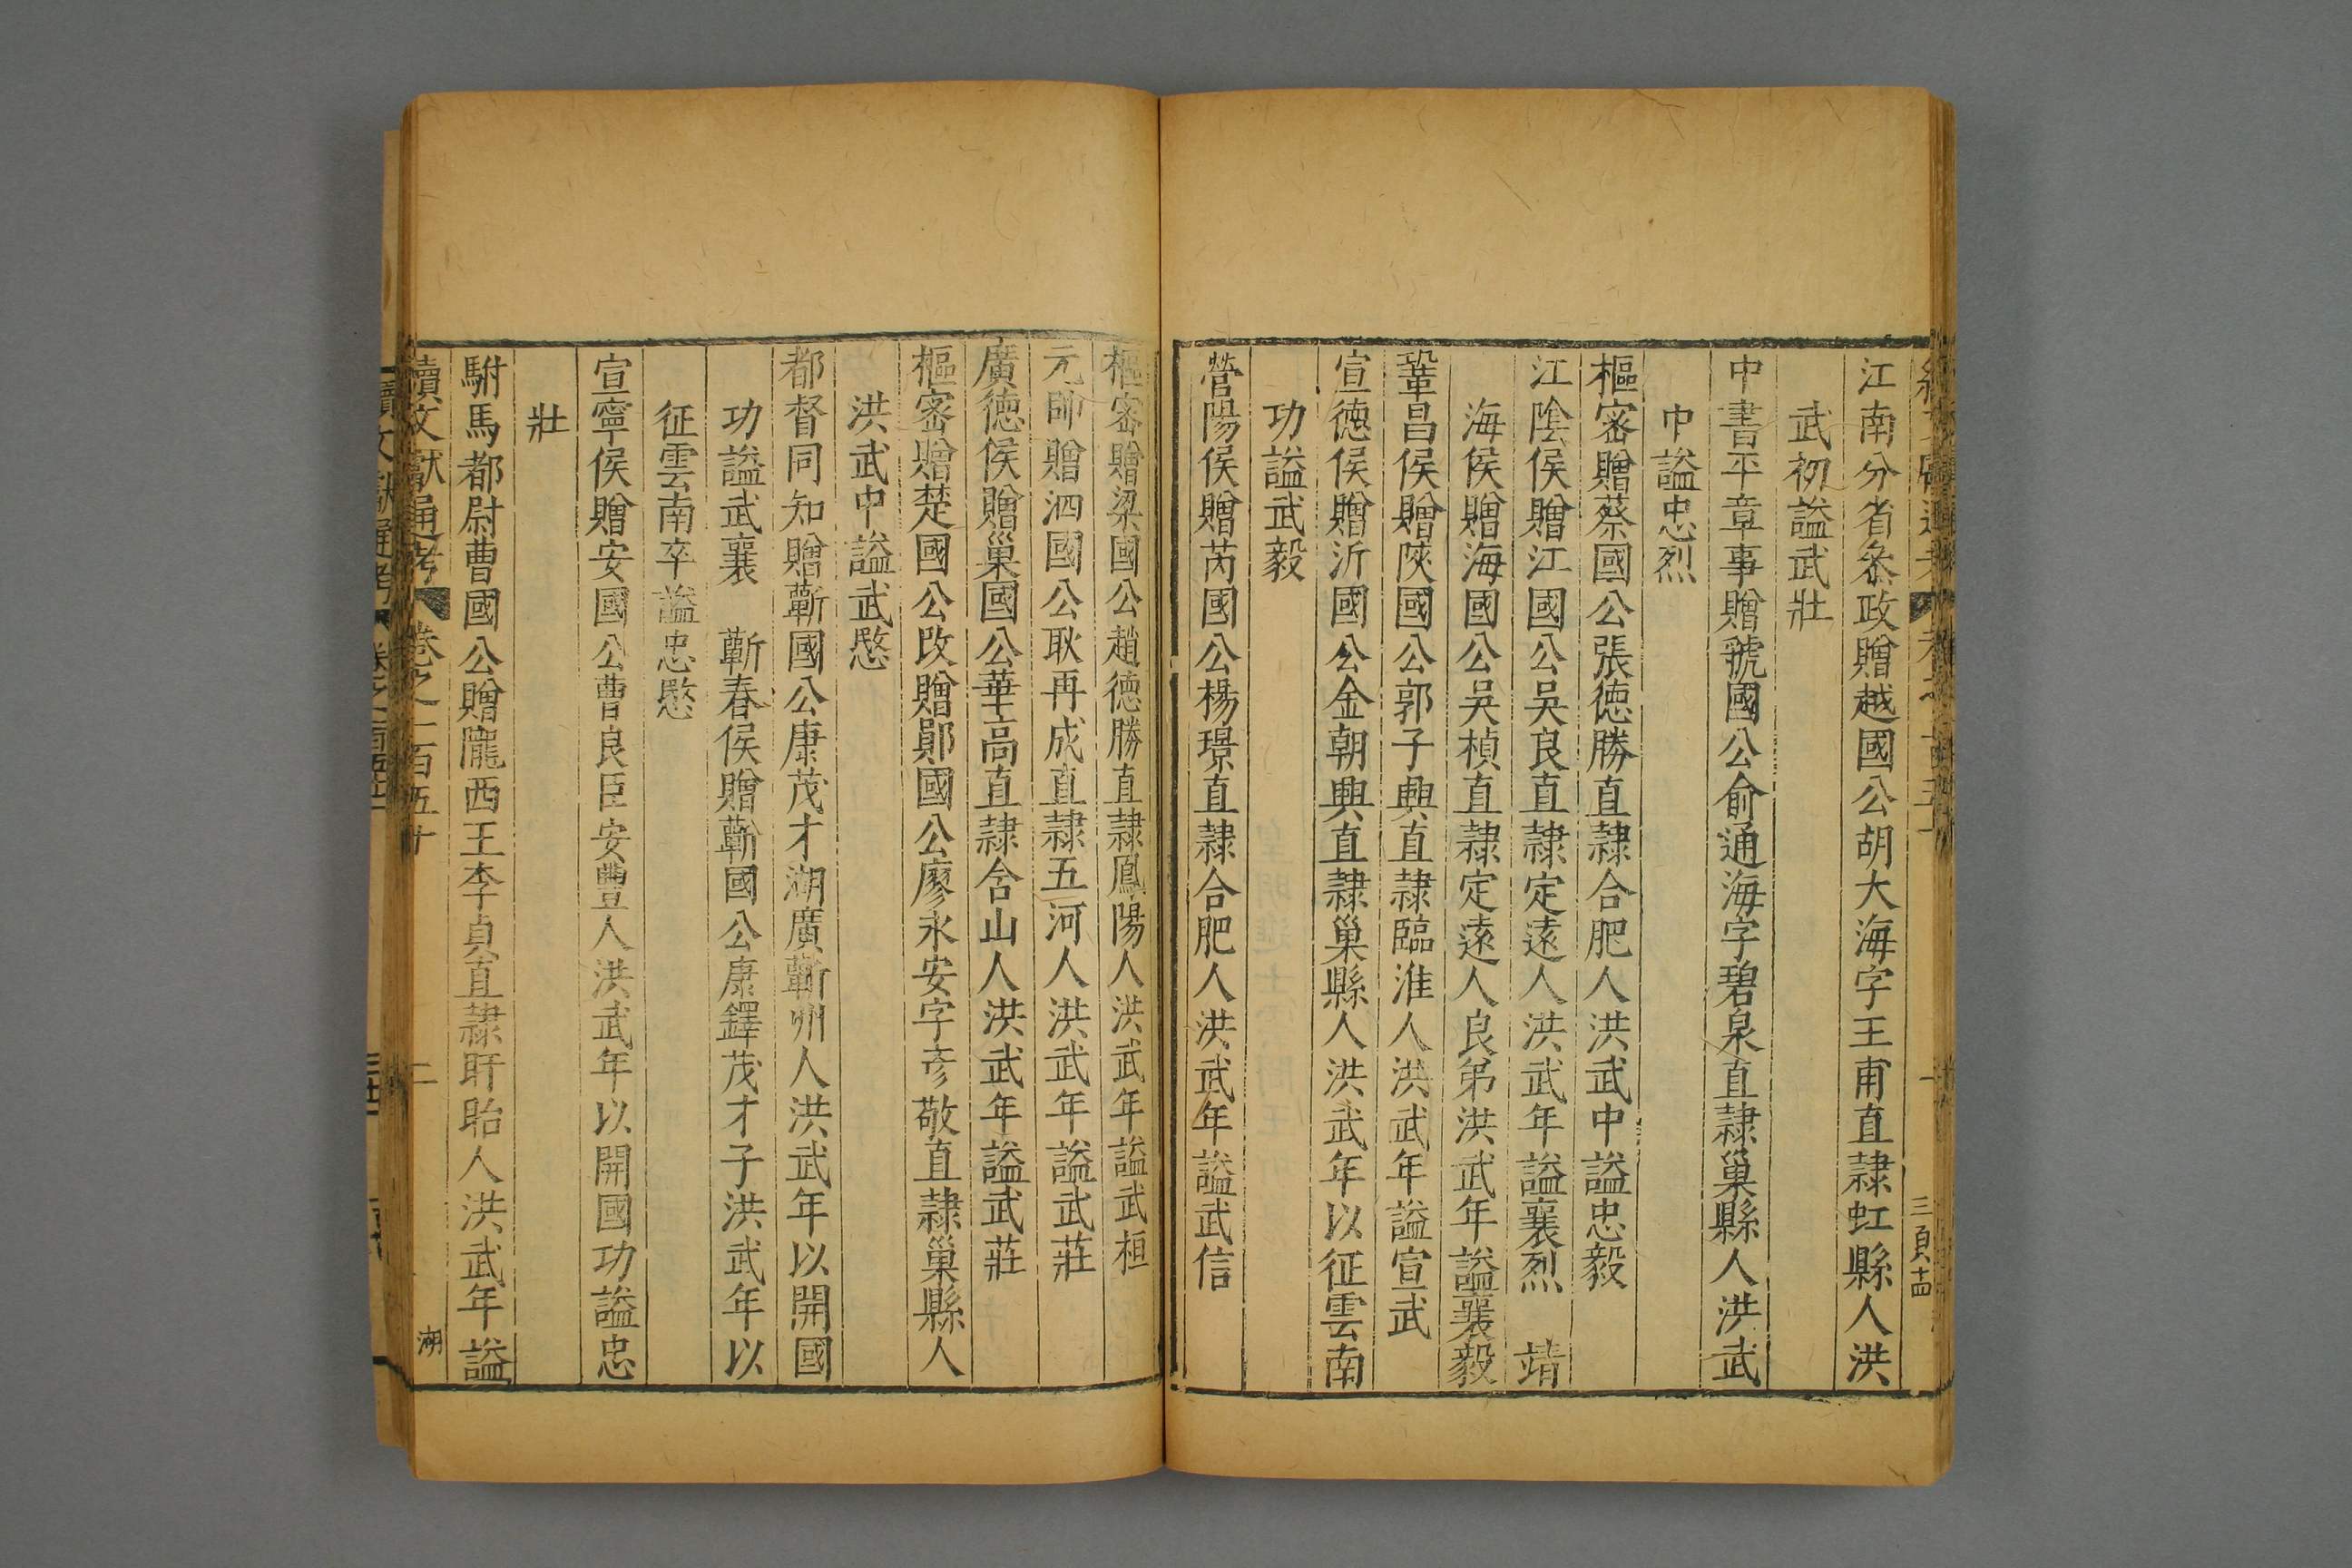 江南分省叅政贈越國公胡大海字王甫直隸虹縣人洪
武初謚武壯
中書平章事贈虢國公俞通海字碧泉直隸巢縣人洪武
中謚忠烈
樞密贈蔡國公張德勝直隸合肥人洪武中謚忠毅
江陰侯贈江國公吳良直隸定遠人洪武年謚襄烈 靖
海侯贈海國公吳楨直隸定遠人良弟洪武年謚襄毅
鞏昌侯贈陝國公郭子興直隸臨淮人洪武年謚宣武
宣德侯贈沂國公金朝興直隸巢縣人洪武年以征雲南
功謚武毅
營陽侯贈芮國公楊璟直隸合肥人洪武年謚武信
樞密贈梁國公趙德勝直隸鳳陽人洪武年謚武桓
元帥贈泗國公耿再成直隸五河人洪武年謚武莊
廣德侯贈巢國公華高直隸含山人洪武年謚武莊
樞密贈楚國公改贈鄖國公廖永安字彥敬直隸巢縣人
洪武中謚武愍
都督同知贈蘄國公康茂才湖廣蘄州人洪武年以開國
功謚武襄 蘄春侯贈蘄國公康鐸茂才子洪武年以
征雲南卒謚忠愍
宣寧侯贈安國公曹良臣安豐人洪武年以開國功謚忠
壯
駙馬都尉曹國公贈隴西王李貞直隸盱眙人洪武年謚
續文獻通考 卷之一百五十 二